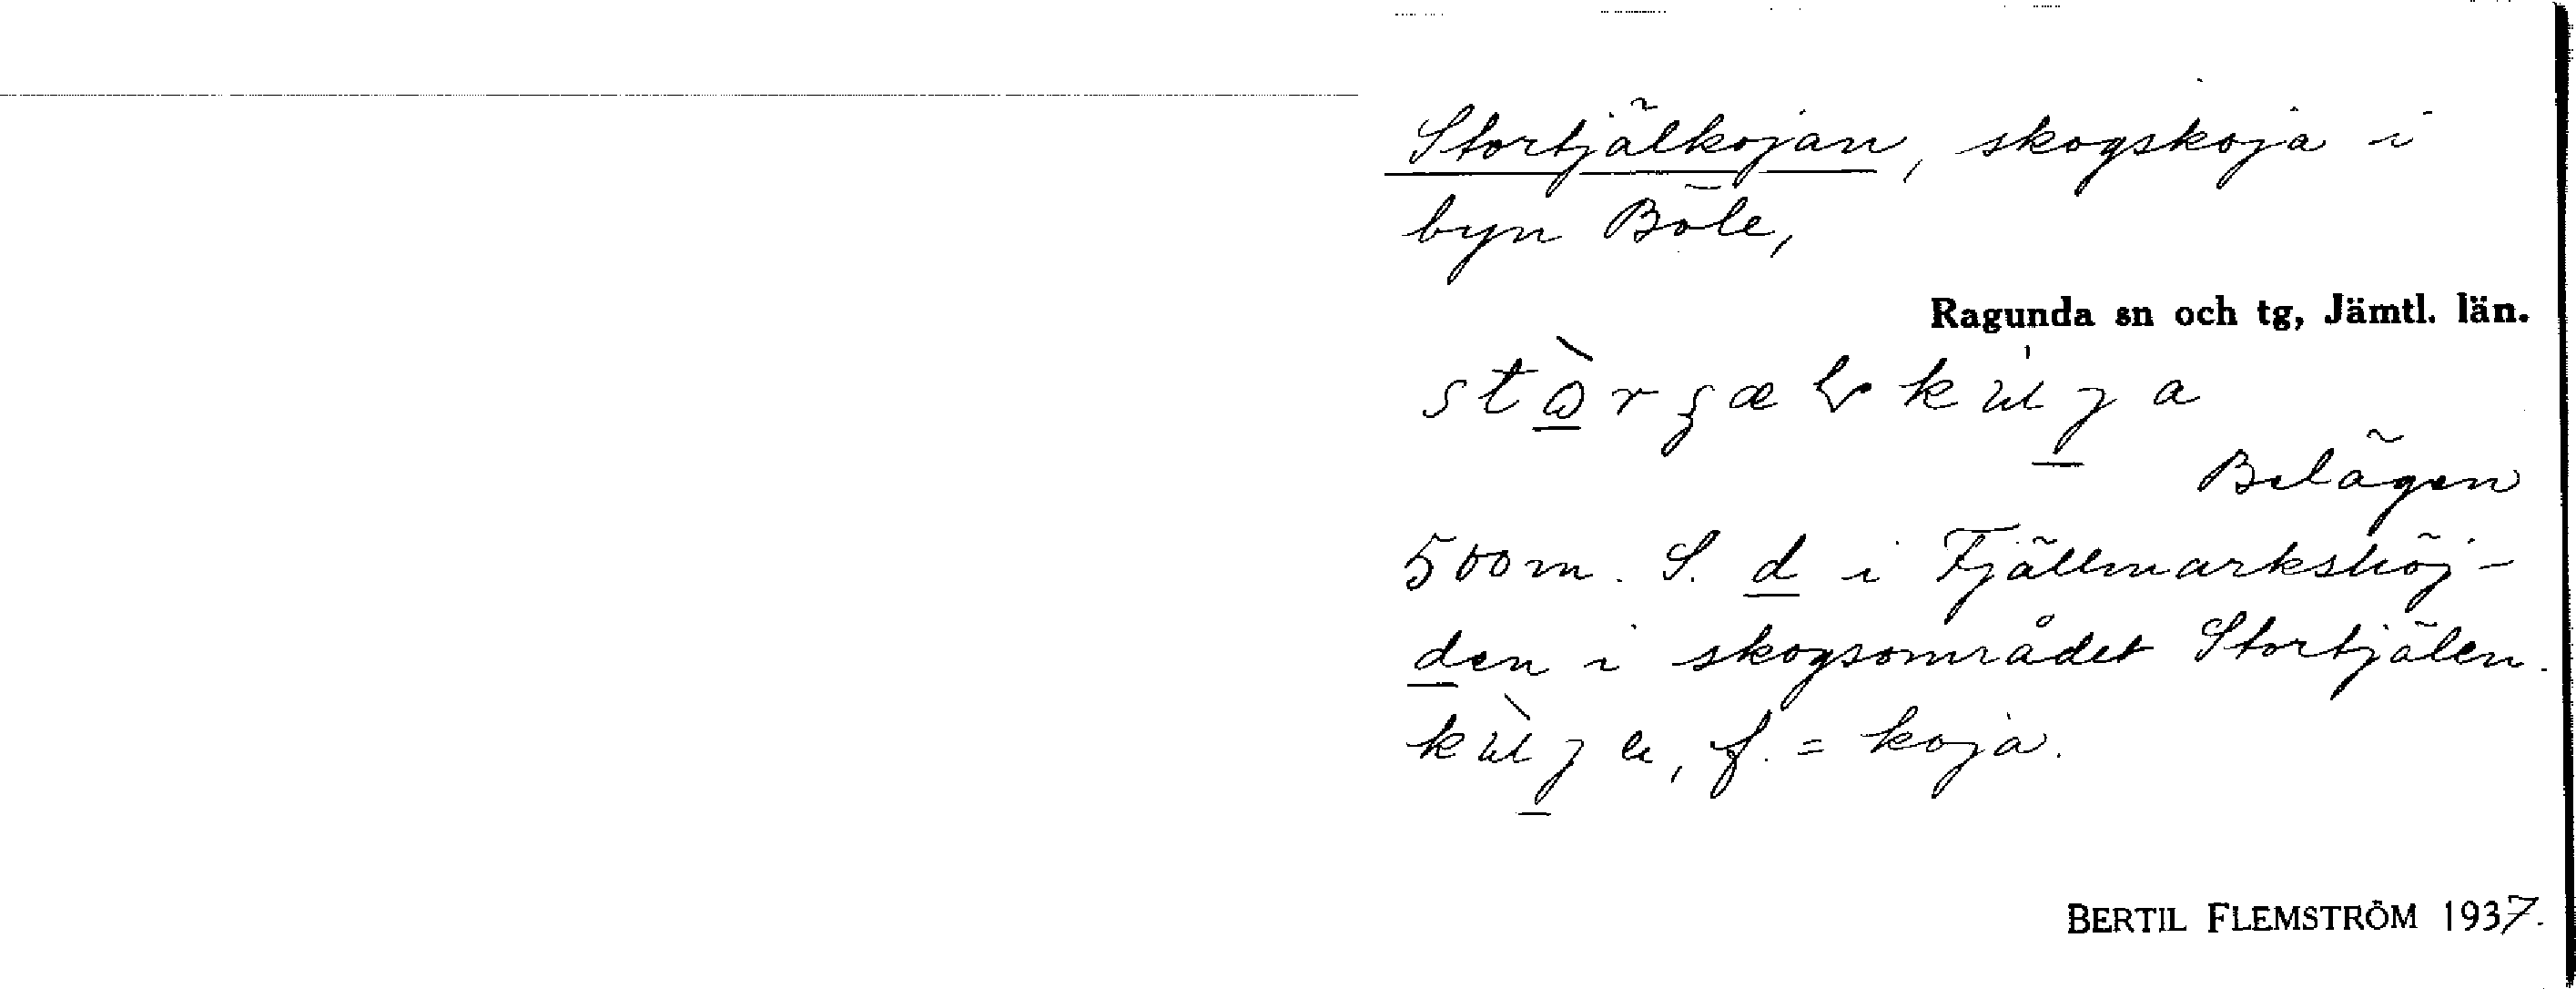 Stortjälkojan, skogskoja i
byn Böle,
Ragunda sn och tg, Jämtl. län.
Belägen
500 m. S. d i Fjällmarkshöj-
den i skogsområdet Stortjälen.
f. = koja.
BERTIL FLEMSTRÖM 1937.